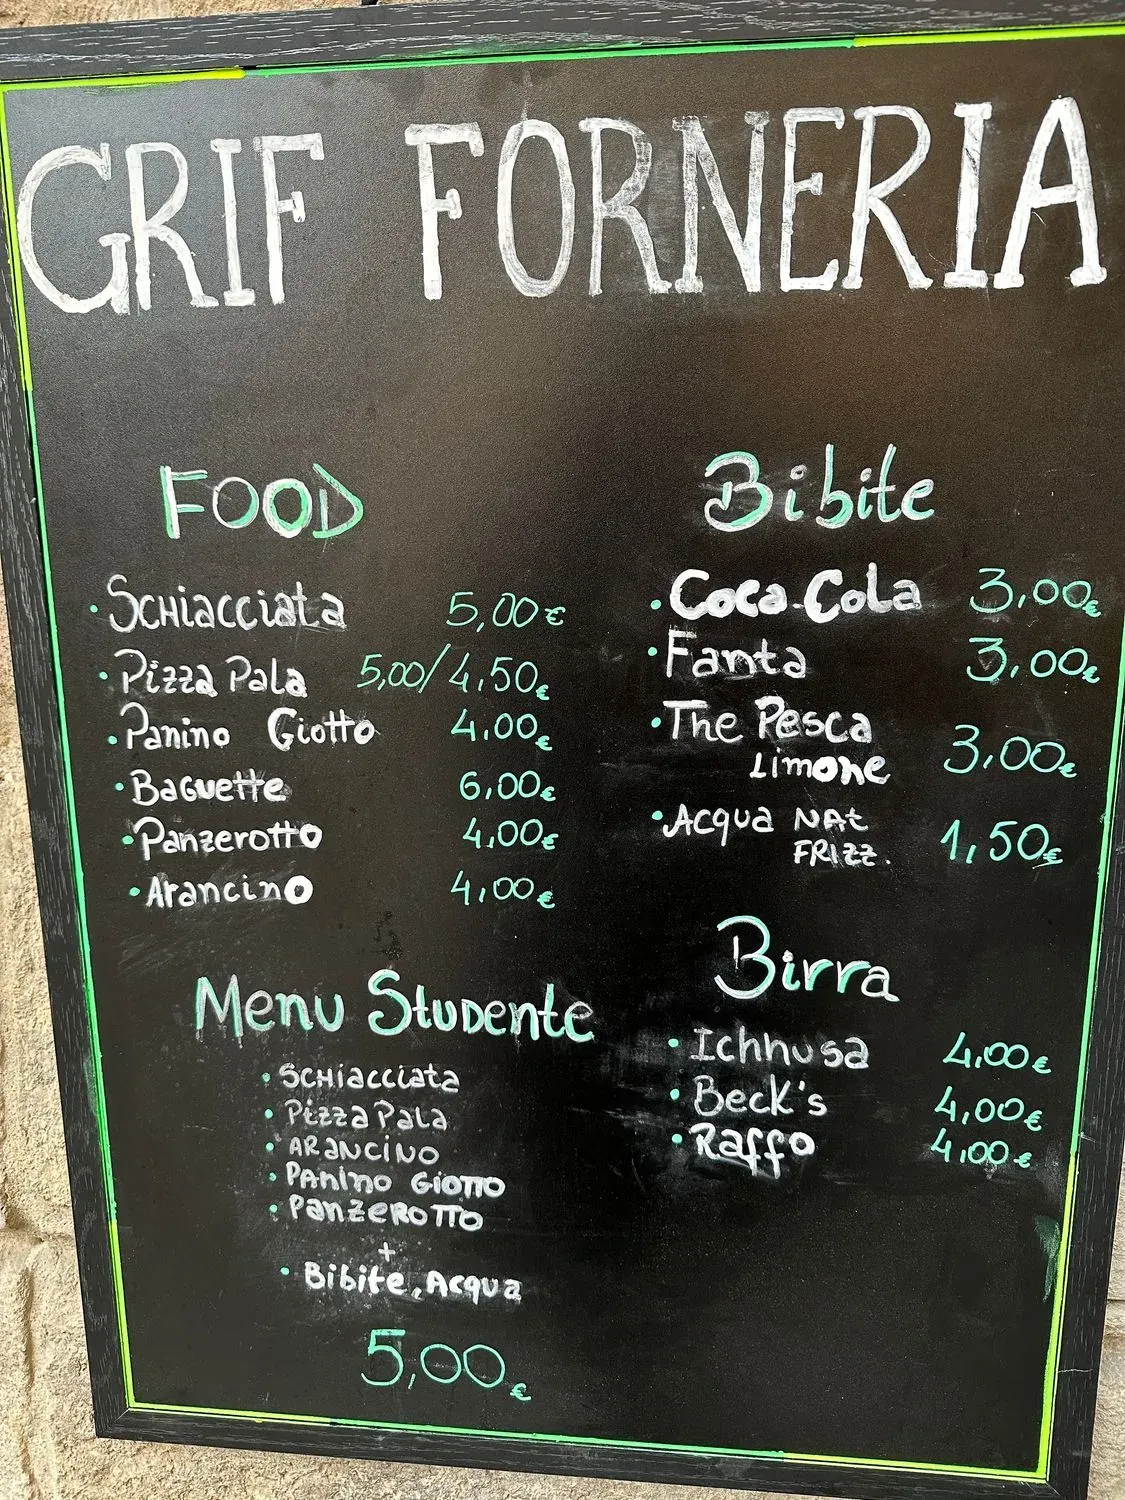 GRIF FORNERIA
FOOD
• Schiacciata 5,00€
• Pizza Pala 5,00/4,50€
• Panino Giotto 4,00€
• Baguette 6,00€
• Panzerotto 4,00€
• Arancino 4,00€
Menu Studente
• Schiacciata
• Pizza Pala
• ARANCINO
• PANINO GIOTTO
• PANZEROTTO
+
• Bibite, Acqua
5,00€
Bibite
• Coca-Cola 3,00€
• Fanta 3,00€
• The Pesca
Limone 3,00€
• Acqua NAt
FRIZZ. 1,50€
Birra
• Ichnusa 4,00€
• Beck's 4,00€
• Raffo 4,00€